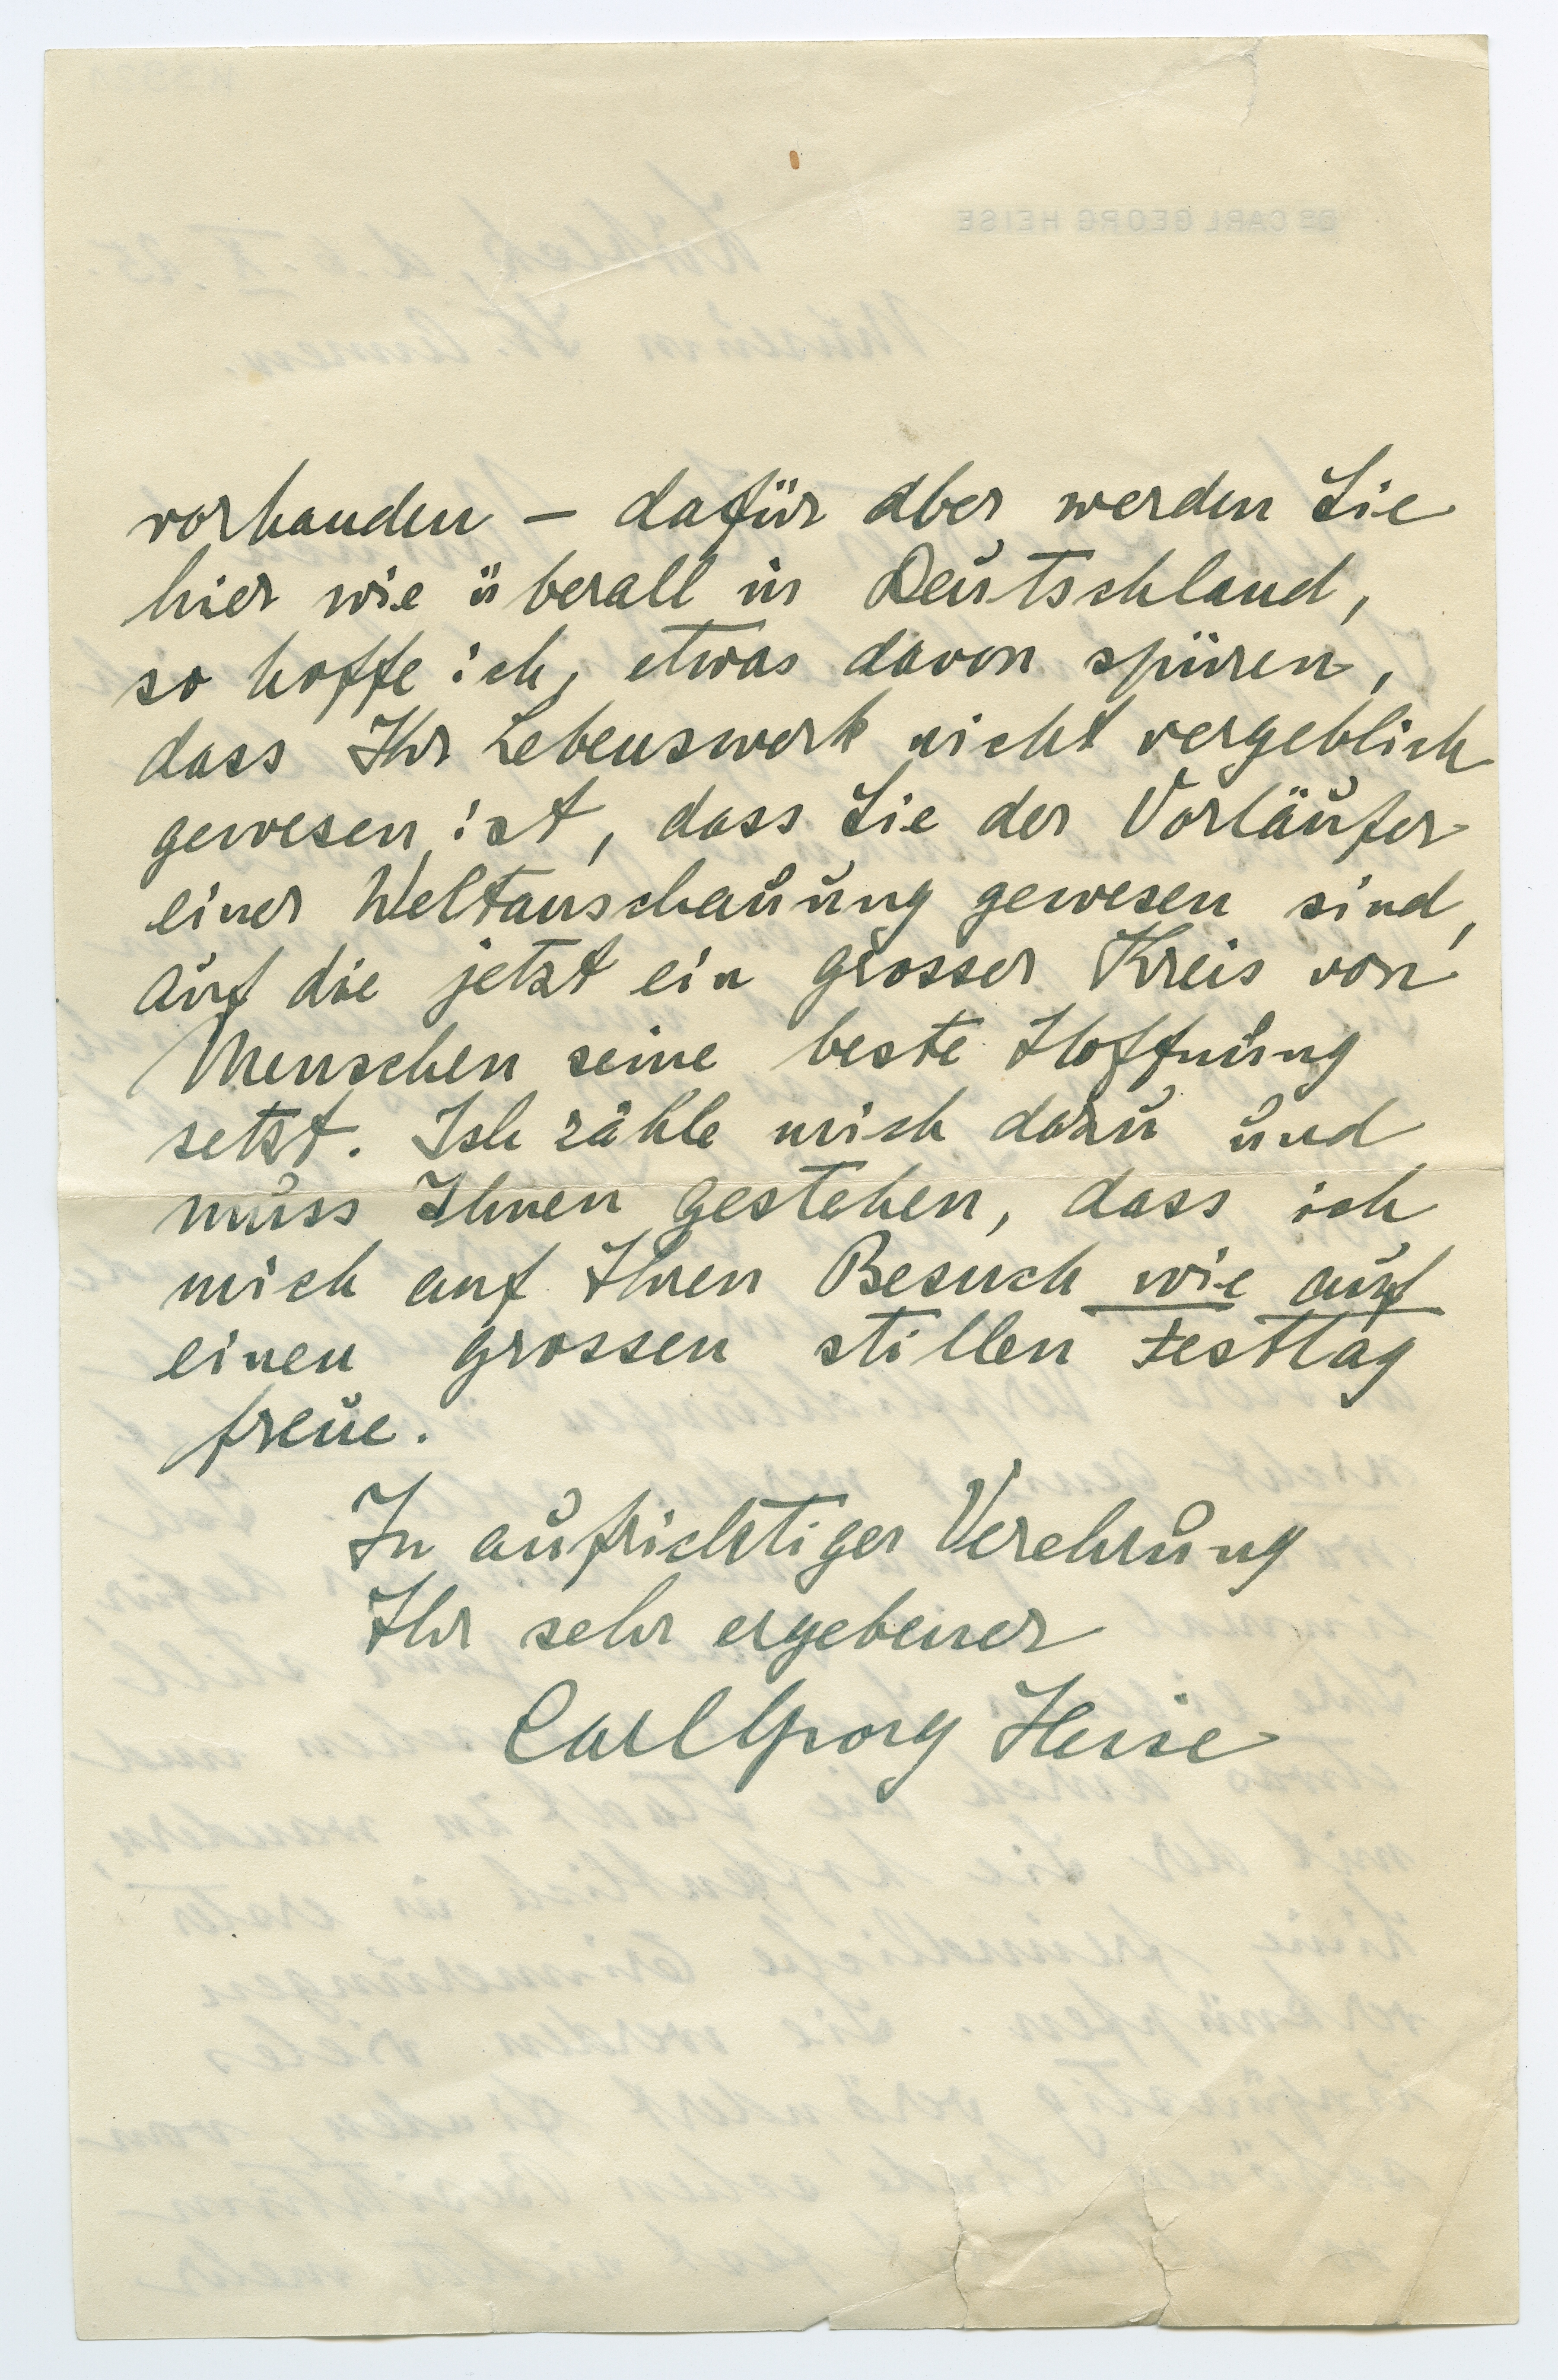 vorhanden – dafür aber werden Sie
hier wie überall in Deutschland,
so hoffe ich, etwas davon spüren,
dass Ihr Lebenswerk nicht vergeblich
gewesen ist, dass Sie der Vorläufer
einer Weltanschauung gewesen sind,
auf die jetzt ein grosser Kreis von
Menschen seine beste Hoffnung
setzt. Ich zähle mich dazu und
muss Ihnen gestehen, dass ich
mich auf Ihren Besuch wie auf
einen grossen stillen Festtag
freue.
In aufrichtiger Verehrung
Ihr sehr ergebener
Carl Georg Heise